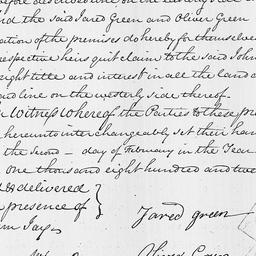 and the said Jared Green and Oliver Green
ation of the premises do hereby for themselves
respective heirs quit claim to the said John
right title and interest in all the land
and line on the westerly side thereof.
Witness whereof the Parties to these
hereunto interchangeably set their
the second day of February in the Year
one thousand eight hundred and
& delivered
presence of
Jay
Jared green